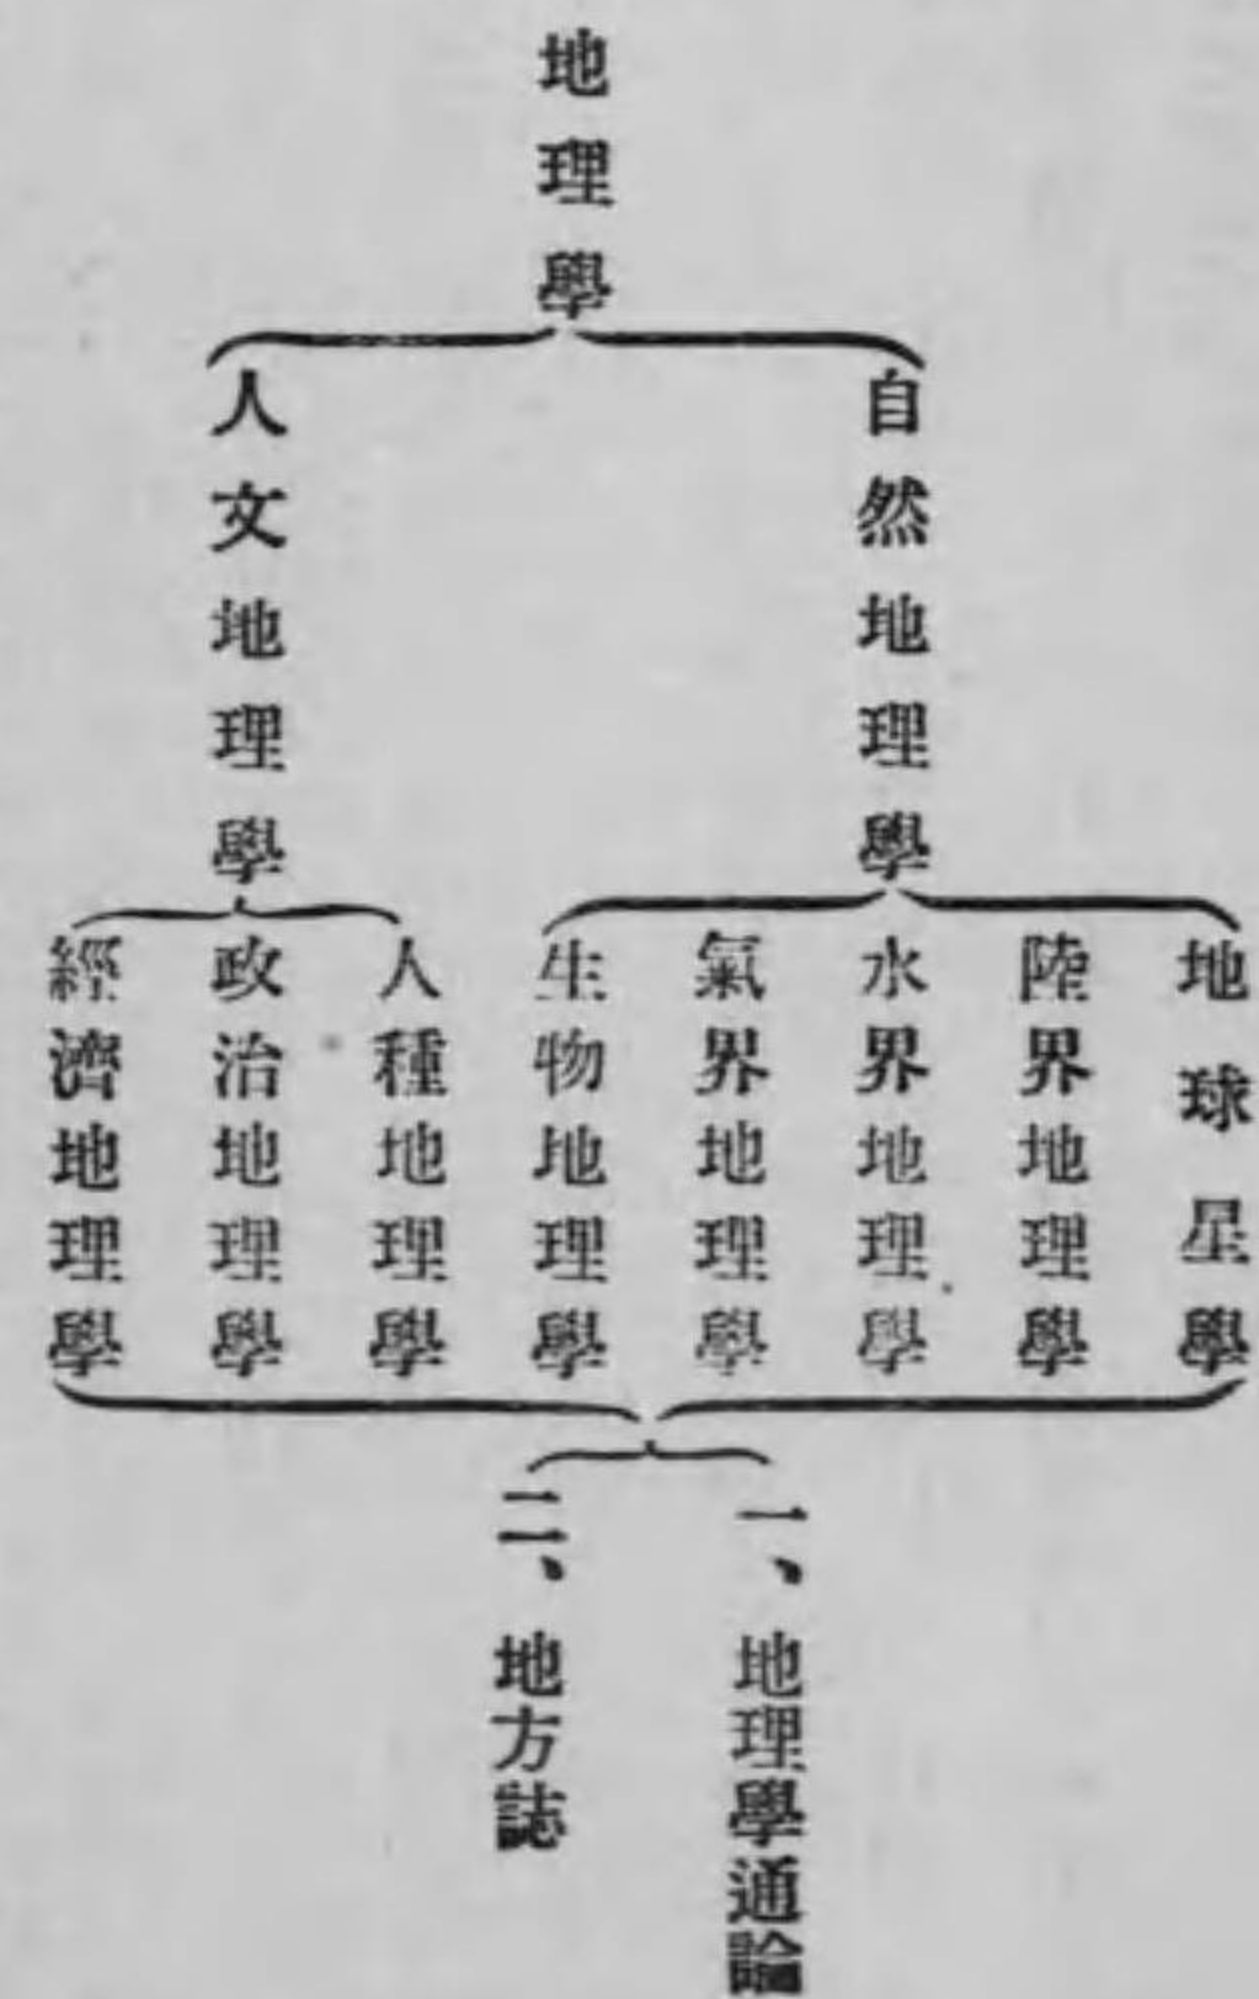 地理學
自然地理學
人文地理學
地球星學
陸界地理學
水界地理學
氣界地理學
生物地理學
人種地理學
政治地理學
經濟地理學
一、地理學通論
二、地方誌